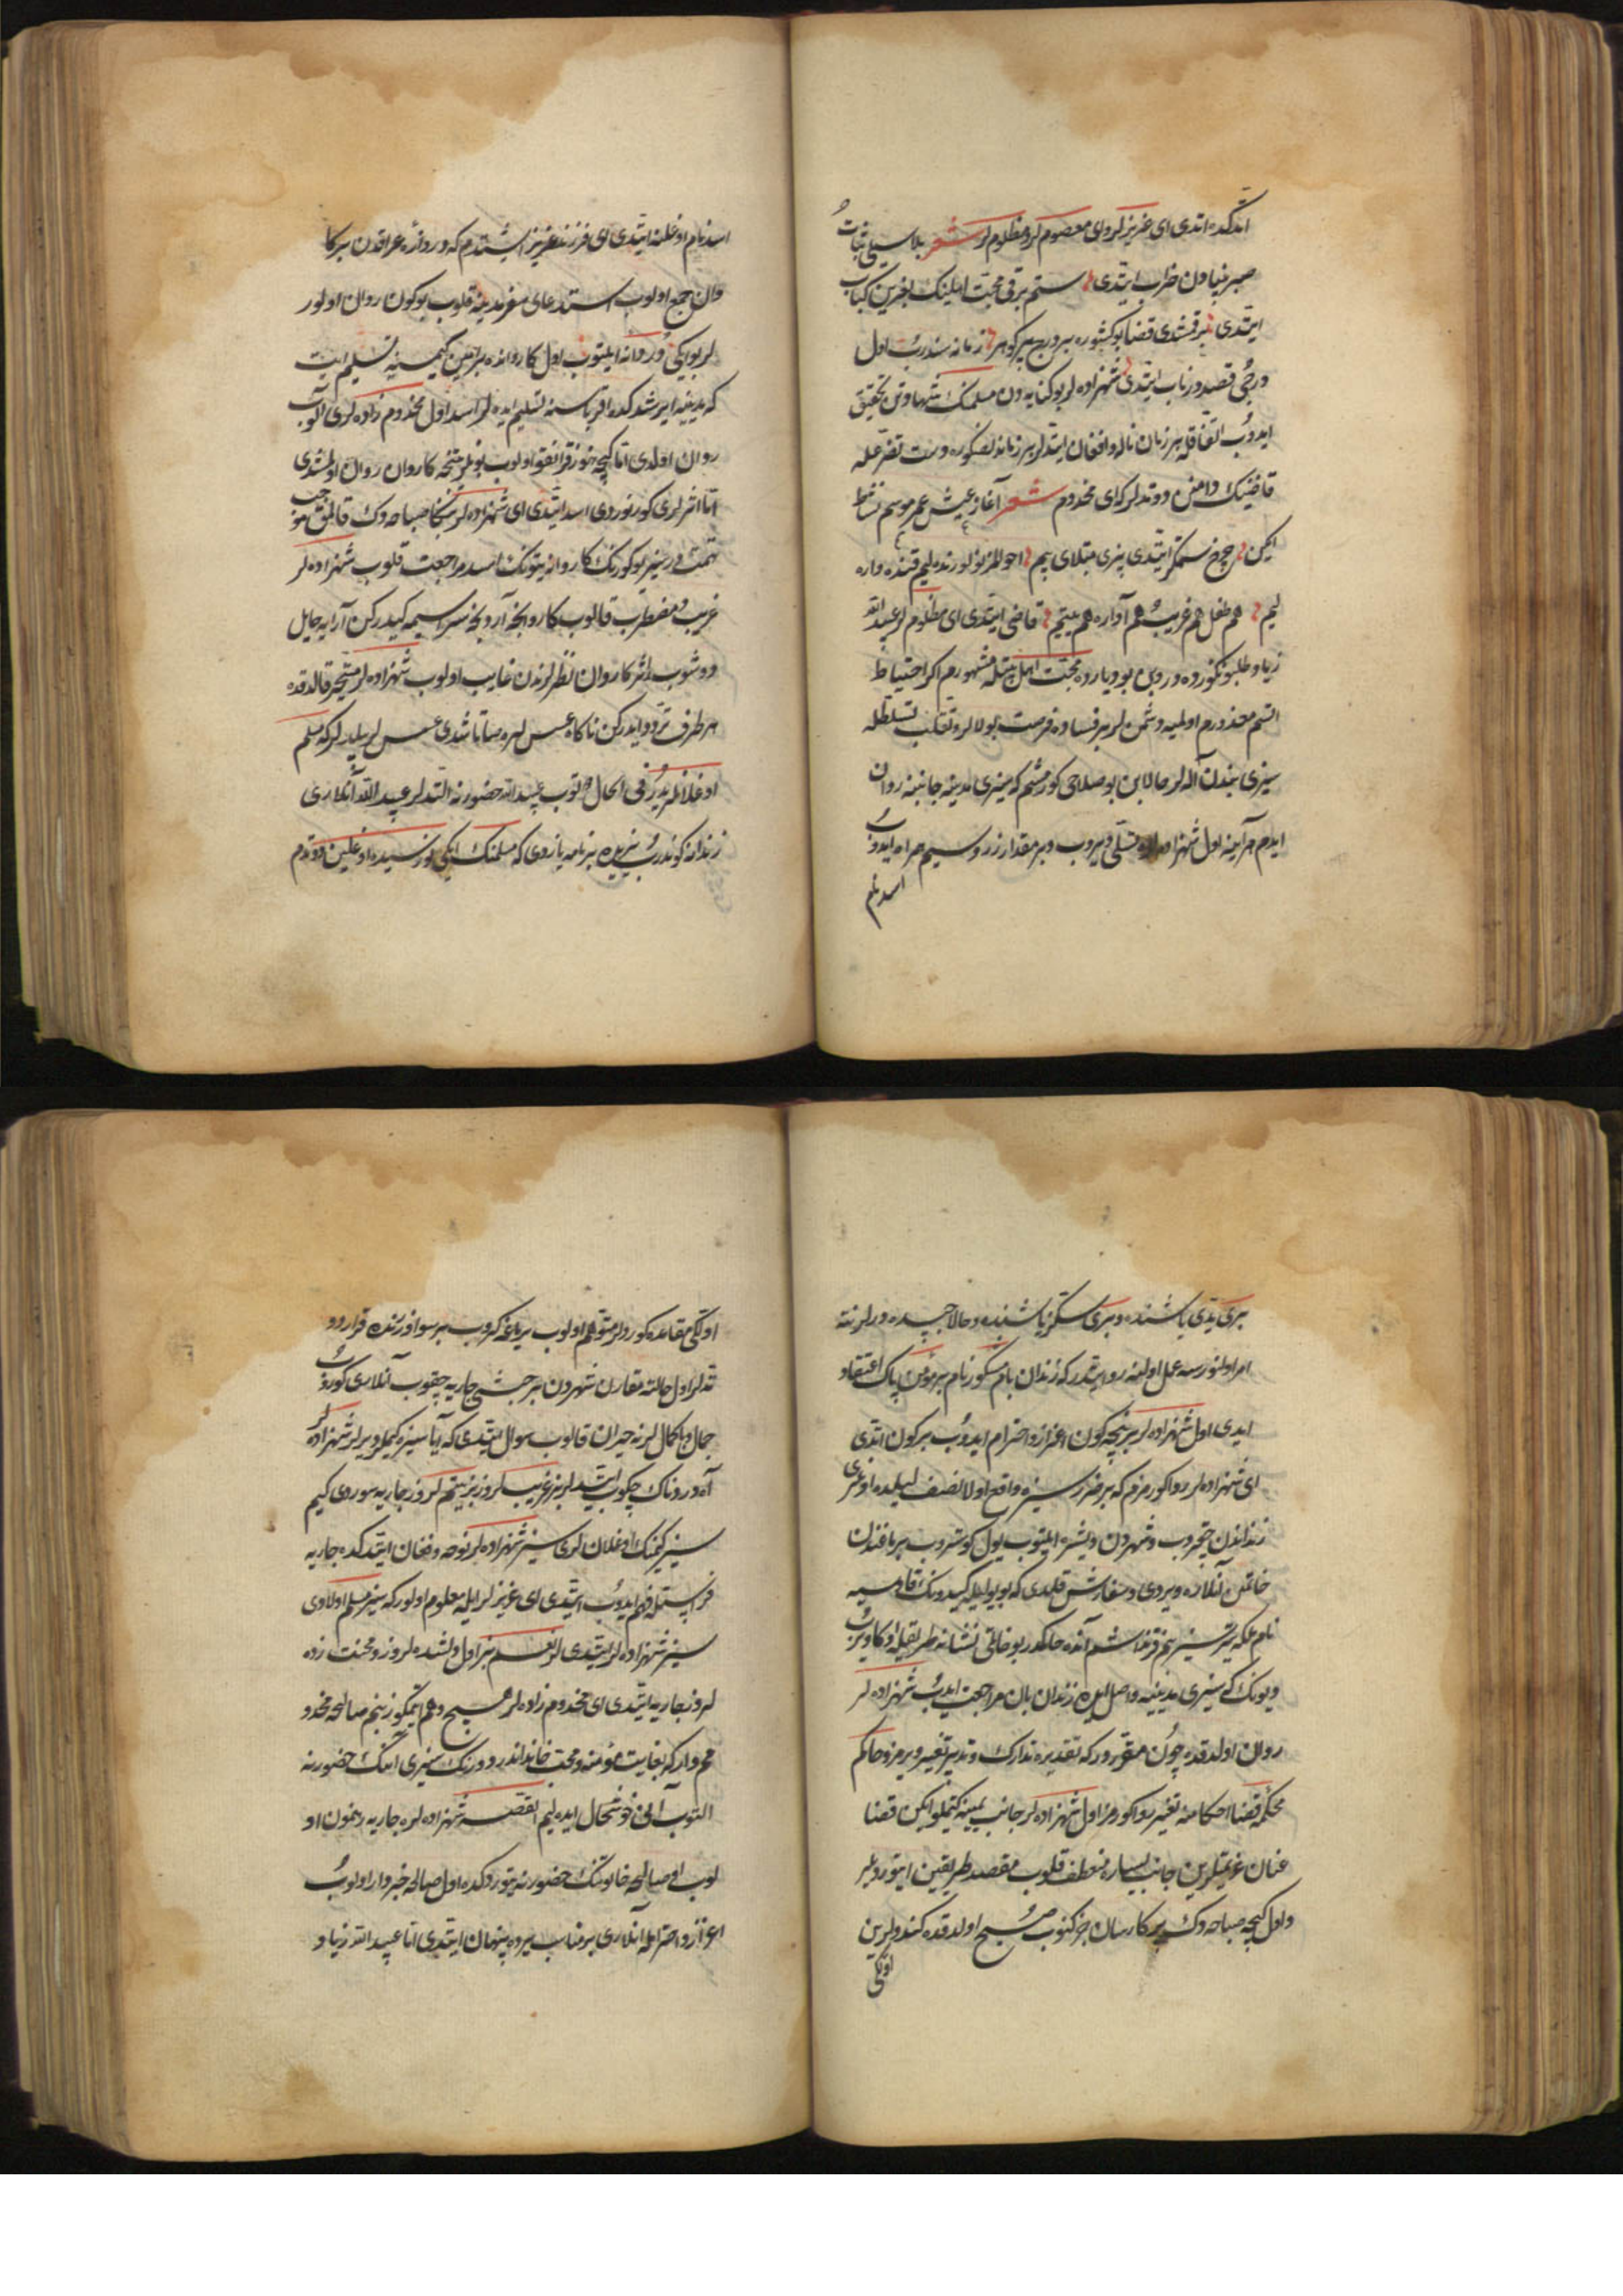 اتدكده اتدی ای عزیزلر و ای معصوملر و مظلوملر شعر بلا سیلی ثبات
صبر بنیادن خراب ایتدی ستم برقی محبت اهلینك بغرین كباب
ایتدی بر قتندی قضا بو كشوره بر درج پر كوهر زمانه سندرب اول
درجی قصد در ناب ایتدی شهزاده لر بو كنایه دن مسلمك شهادتن تحقیق
ایدوب اتفاقله هر زمان ناله و افغان ایتدلر
قاضینك دامنن دوتدلر كه ای مخدوم شعر آغاز عیش عمر موسم نشاط
ایكن چرخ ستمكر ایتدی بزی مبتلای بیم احوالمز نولور نده لیم قنده واره
لیم هم طفل هم غریب هم آواره هم یتیم قاضی ایتدی ای مظلوملر عبید الله
زیاد طلبوكزده در و بن بو دیارده محبت اهل بیتله مشهورم اكر احتیاط
اتسم معذورم اولمیه دشمنلر بر فساده فرصت بولالر و تغلب تسلطله
سیزی بندن آله لر حالا بن بو صلاحی كورمشم كه سیزی مدینه جانبنه روان
ایدم هر آینه اول شهزاده لره تسلی ویروب و بر مقدار زر و سیم همراه ایدوب
اسد نام
اسد نام اوغلنه ایتدی ای فرزند عزیز اشتدم كه دروازه عراقدن بر كا
وان جمع اولوب استدعای سفر مدینه قلوب بو كون روان اولور
لر بو ایكی در دانه ایلتوب اول كاروانده بر امین كیمسیه تسلیم ایت
كه مدینیه ایرشدكده اقرباسنه تسلیم ایده لر اسد اول مخدوم زاده لری آلوب
روان اولدی اتا كیجه
اتا اثرلری كورنوردی اسد ایتدی ای شهزاده لر بنكا صباحه دك قالمق موجب
تهمت در سیز بو كورنك كاروانه یتونك اسد مراجعت قلوب شهزاده لر
غریب و مضطرب قالوب كاروانجه آردنجه سراسیمه كیدركن آرایه حایل
دوشوب اثر كاروان نظرلرندن غایب اولوب شهزاده لر متحیر قالدقده
هر طرف تردد ایدركن ناكاه عسس لره صاتاشدی عسس لر بیلدلر كه مسلم
اوغلانلریدر فی الحال دوتوب عبید الله حضورنه التدلر عبید الله آنلاری
زندانه كوندرب یزیده بر نامه یازدی كه مسلمك ایكی نورسیده اوغلین دوتدم
بری یدی یاشنده و بری سكز یاشنده و حالا حبسده درلر نته
امر اولنورسه عمل اولنه روایتدر كه زندان بان مشكور نام بر مؤمن پاك اعتقاد
ایدی اول شهزاده لره بر نیچه كون اعزاز و احترام ایدوب بر كون اتدی
ای شهزاده لر روا كورمزم كه بر ضرر سیزه واقع اولا نصف لیلده اوغری
زنداندن چقروب و شهردن دیشره ایلتوب یول كوستروب برماغندن
خاتمن آنلاره ویردی و سفارش قلدی كه بو یولیله كیدونك قادسیه
نام ملكه یتر سیز بنم قرنداشم آنده حاكمدر بو خاتمی نشانه طریقیله اكا ویرب
دیونك كه سیزی مدینیه واصل ایلیه زندان بان مراجعت ایدب شهزاده لر
روان اولدقده چون مقرر در كه تقدیره تدارك و تدبیر تغییر ویرمز و حاكم
محكمه قضا احكامنه تغییر روا كورمز اول شهزاده لر جانب یمینه كتملو ایكن قضا
عنان عزیمتلرین جانب یساره منعطف قلوب مقصد طریقین ایتوردیلر
و اول كیجه صباحه دك پركار سان كزنوب صبح اولدقده كندولرین
اولكی
اولكی مقامده كوردلر متوهم اولوب بر باغه كروب بر سو اوزرنده قرار دو
تدلر اول حالته مقارن شهردن بر حبشی جاریه چقوب آنلاری كوروب
جمال با كماللرنه حیران قالوب سوال ایتدی كه آیا سیزه كیملر دیرلر شهزاده لر
آه دردناك چكوب ایتدیلر بز غریبلروز بز یتیملروز جاریه صوردی كیم
سیز كیمك اوغلانلری سیز شهزاده لر نوحه و فغان ایتدكده جاریه
فراستله فهم ایدوب ایتدی ای عزیزلر ایله معلوم اولور كه سیز مسلم اولادی
سیز شهزاده لر ایتدی لر نعم بز اول دلشده لروز و محنت زده
لروز جاریه ایتدی ای مخدوم زاده لر هیچ وهم ایتمكوز بنم صالحه مخدو
مم وار كه بغایت مؤمنه و محب خانداندر دورنك سیزی آنك حضورنه
التوب آنی خوشحال ایده لیم القصه شهزاده لره جاریه رهنمون او
لوب اول صالحه خاتونك حضورنه یتوردكده اول صالحه خبردار اولوب
اعزاز و احترامله آنلاری بر مناسب یرده پنهان ایتدی اتا عبید الله زیاد